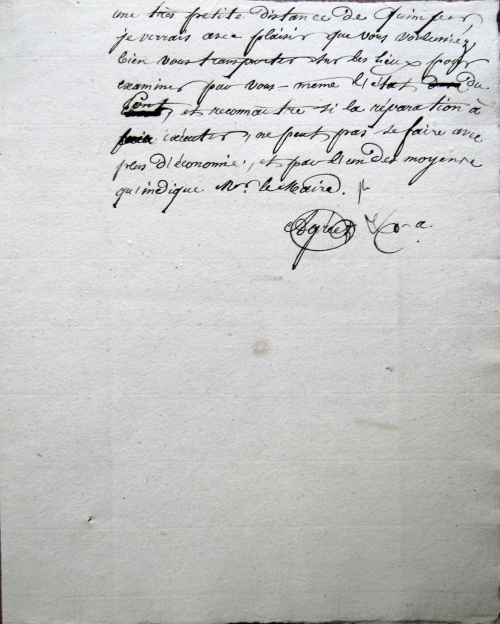 une très petite distance de Quimper,
je verrais avec plaisir que vous voulussiez
bien vous transporter sur les lieux pour
examiner par vous-même l'état du
Pont, et reconnaitre si la réparation à
exécuter, ne peut pas se faire avec
plus d'économie, et par l'un des moyens
qu'indique Mr. le Maire.